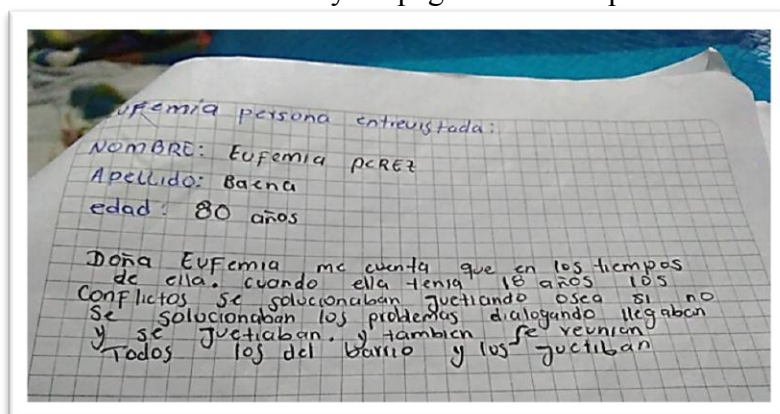 Eufemia persona entrevistada:
NOMBRE: Eufemia PEREZ
Apellido: Baena
edad: 80 años
Doña Eufemia me cuenta que en los tiempos
de ella. cuando ella tenia 18 años los
Conflictos se solucionaban Juetiando osea si no
se solucionaban los problemas dialogando llegaban
y se Juetiaban. y tambien se reunian
Todos los del barrio y los Juetiban